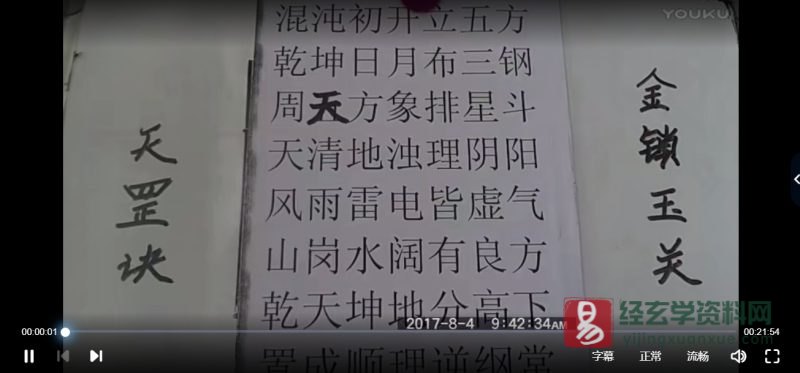 YOUKU
混沌初开立五方
乾坤日月布三钢
周天方象排星斗
天清地浊理阴阳
风雨雷电皆虚气
山岗水阔有良方
乾天坤地分高下
置成顺理逆纲常
天罡诀
金锁玉关
2017-8-4 9:42:34AM
易
经玄学资料网
yijingxuanxue.com
00:00:01
00:21:54
字幕
正常
流畅